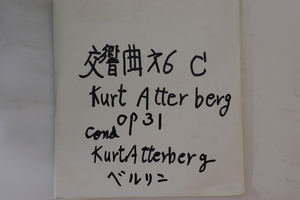 交響曲才6 C
Kurt Atterberg
op 31
Cond
Kurt Atterberg
ベルリン